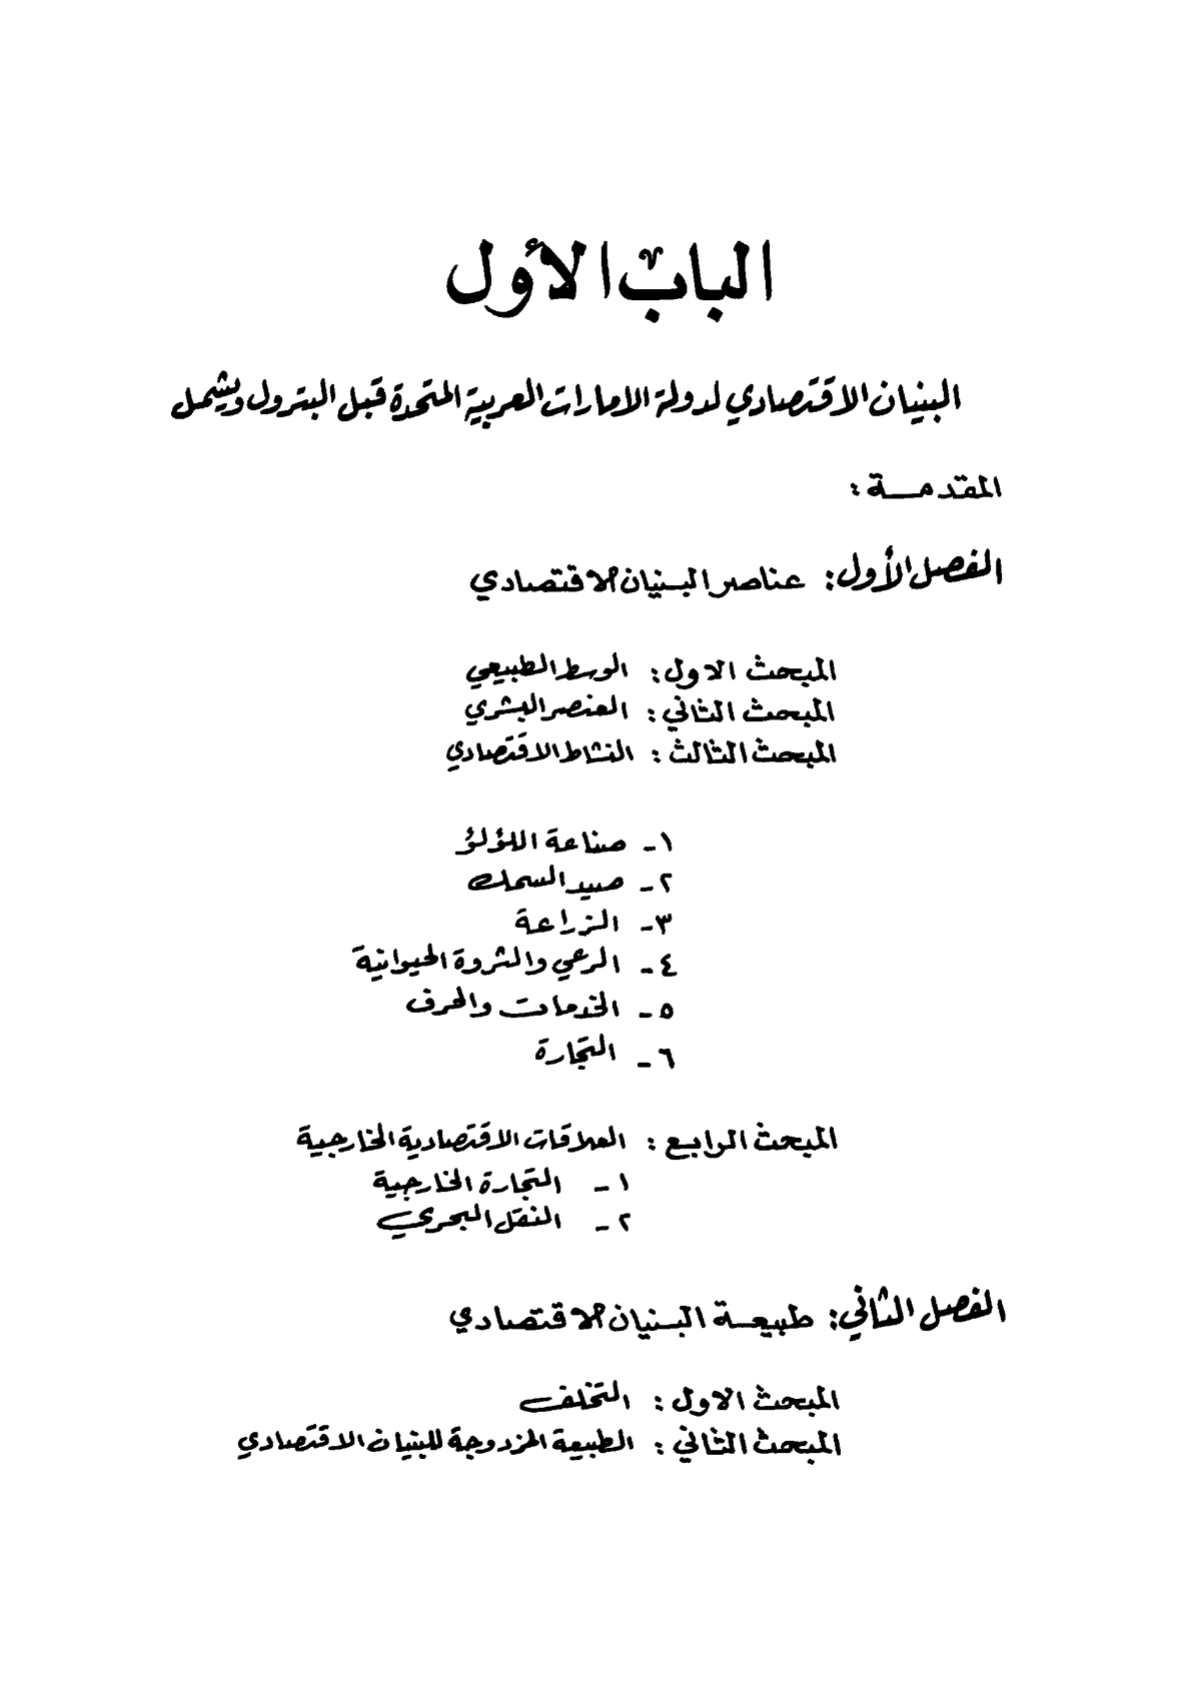 الباب الأول
البنيان الاقتصادي لدولة الامارات العربية المتحدة قبل البترول ويشمل
المقدمــة :
الفصل الأول: عناصر البنيان الاقتصادي
المبحث الاول: الوسط الطبيعي
المبحث الثاني: العنصر البشري
المبحث الثالث: النشاط الاقتصادي
١- صناعة اللؤلؤ
٢- صيد السمك
٣- الزراعة
٤- الرعي والثروة الحيوانية
٥- الخدمات والحرف
٦- التجارة
المبحث الرابع: العلاقات الاقتصادية الخارجية
١- التجارة الخارجية
٢- النقل البحري
الفصل الثاني: طبيعة البنيان الاقتصادي
المبحث الاول: التخلف
المبحث الثاني: الطبيعة المزدوجة للبنيان الاقتصادي